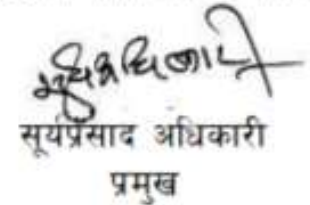 सूर्यप्रसाद अधिकारी
प्रमुख